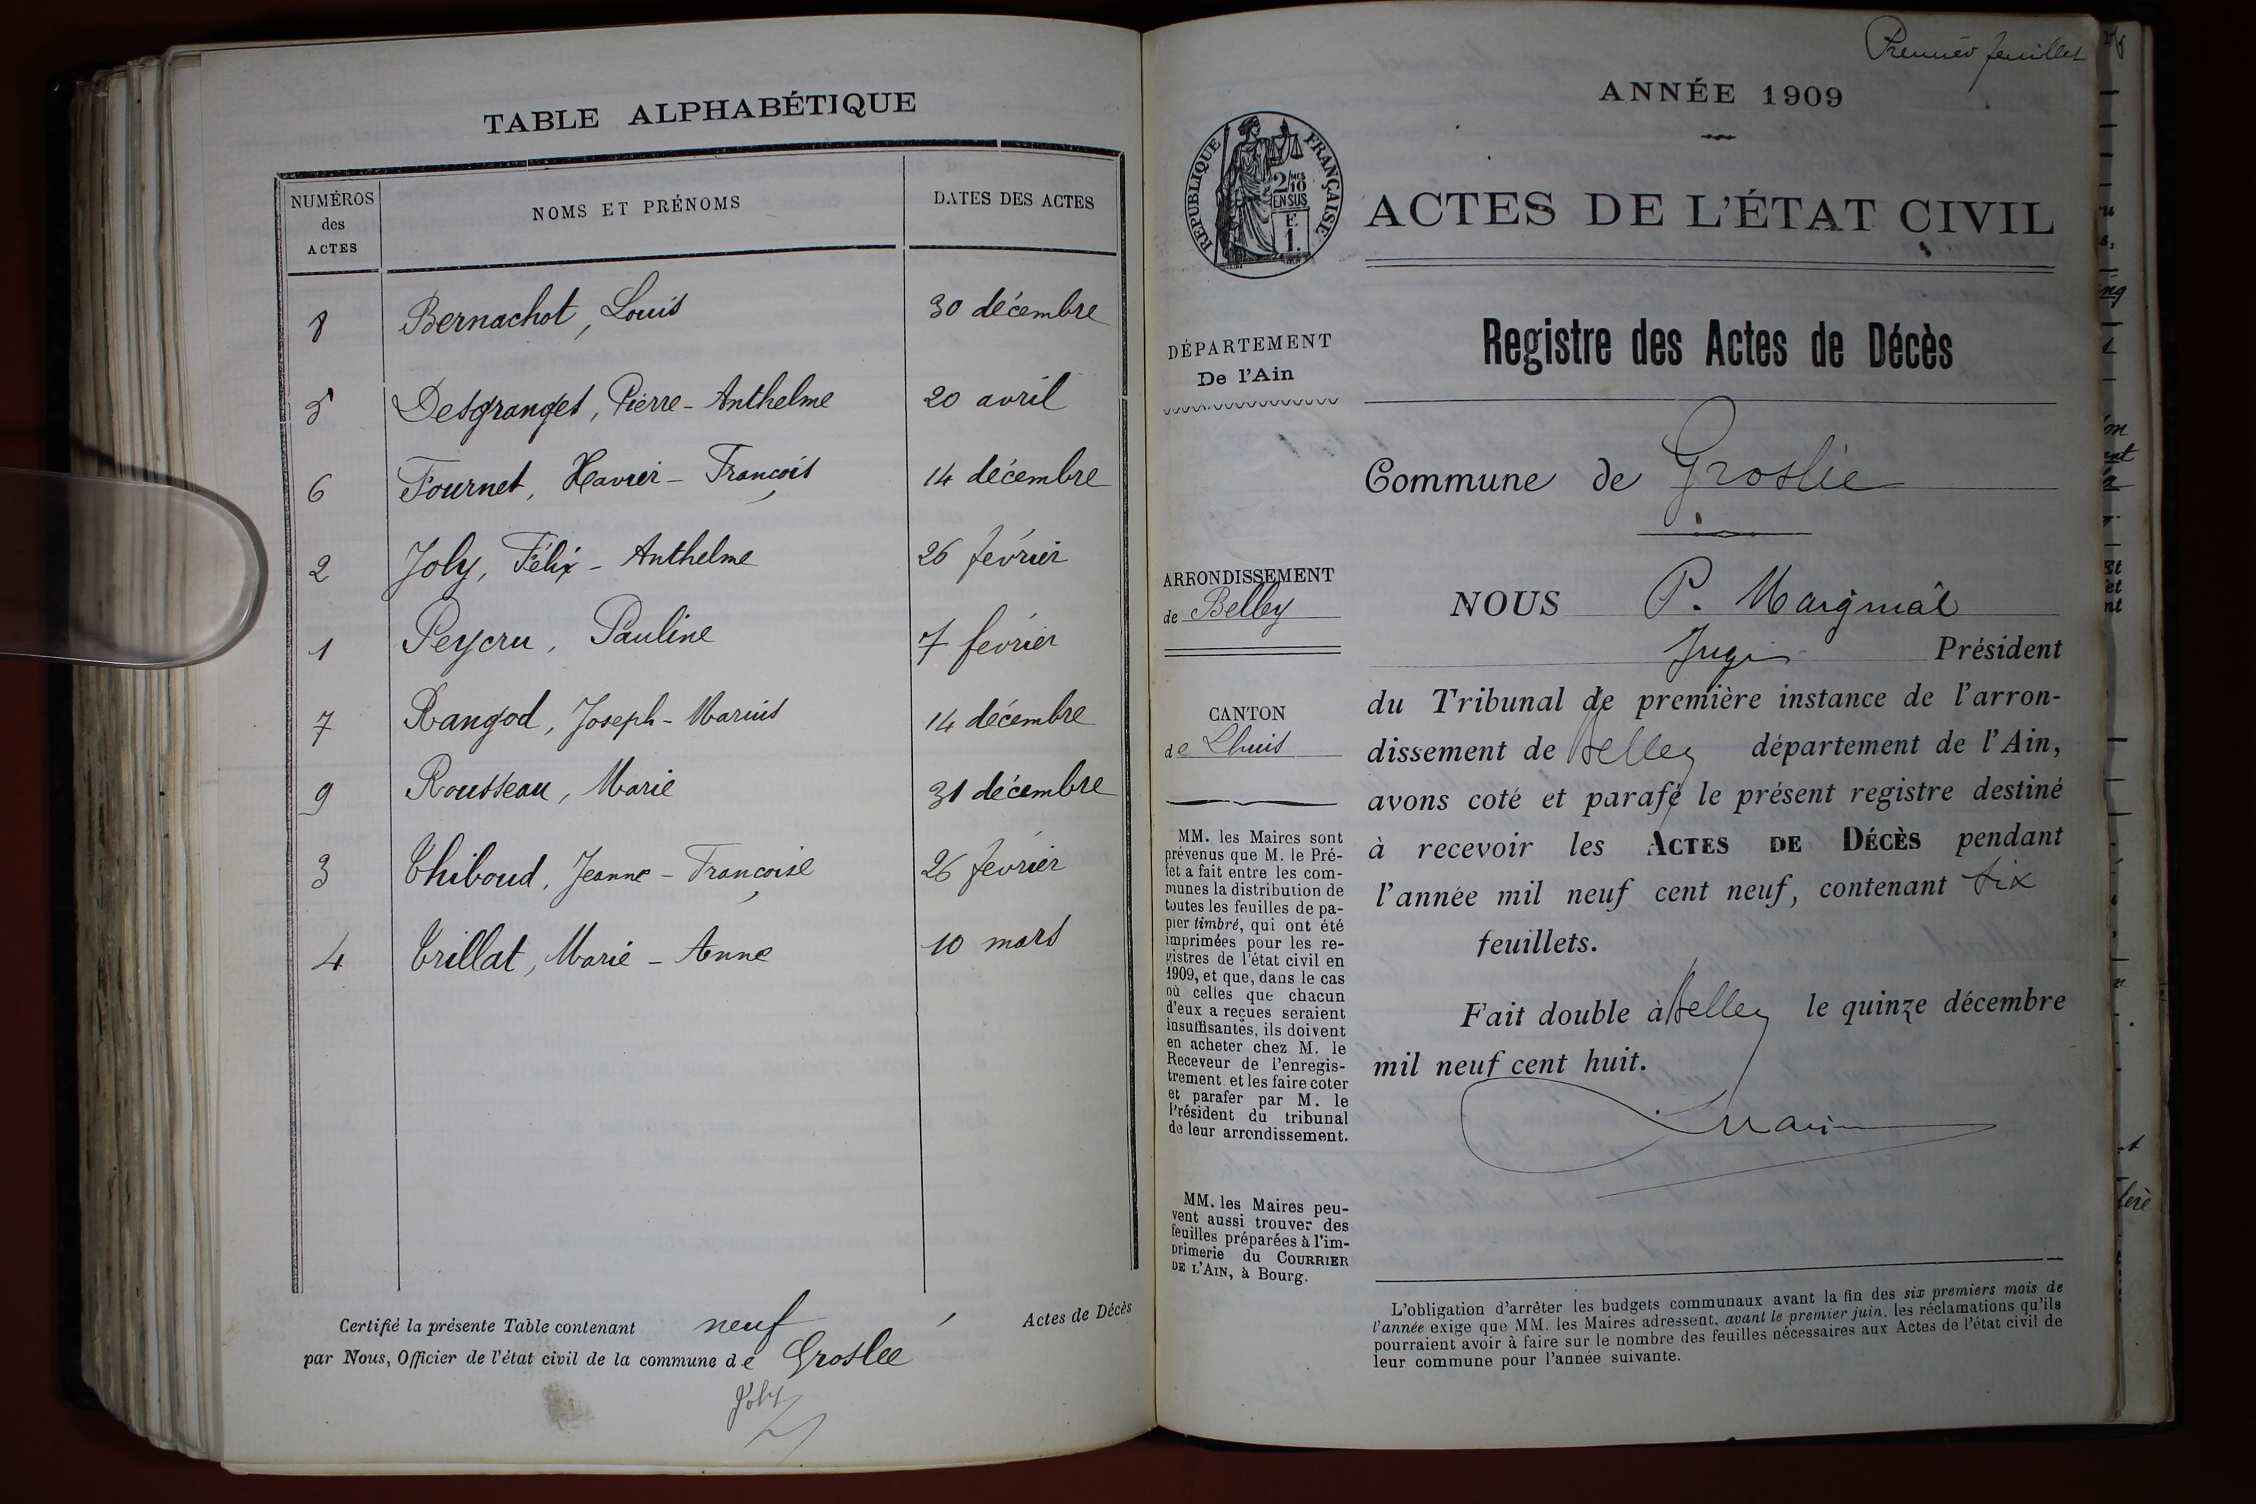 TABLE ALPHABÉTIQUE
NUMÉROS des ACTES NOMS ET PRÉNOMS DATES DES ACTES
8 Bernachot, Louis 30 décembre
5 Desgranges, Pierre-Anthelme 20 avril
6 Fournet, Xavier-François 14 décembre
2 Joly, Félix-Anthelme 26 février
1 Peycru, Pauline 7 février
7 Rangod, Joseph-Marius 14 décembre
9 Rousseau, Marie 31 décembre
3 Thiboud, Jeanne-Françoise 26 février
4 Trillat, Marie-Anne 10 mars
Certifié la présente Table contenant neuf Actes de Décès
par Nous, Officier de l'état civil de la commune de Groslée
Joly
Premier feuillet
ANNÉE 1909
RÉPUBLIQUE FRANÇAISE
2/10 MES
EN SUS
F.
1.
ACTES DE L'ÉTAT CIVIL
DÉPARTEMENT
De l'Ain
Registre des Actes de Décès
Commune de Groslée
ARRONDISSEMENT
de Belley
CANTON
de Lhuis
MM. les Maires sont
prévenus que M. le Pré-
fet a fait entre les com-
munes la distribution de
toutes les feuilles de pa-
pier timbré, qui ont été
imprimées pour les re-
gistres de l'état civil en
1909, et que, dans le cas
où celles que chacun
d'eux a reçues seraient
insuffisantes, ils doivent
en acheter chez M. le
Receveur de l'enregis-
trement et les faire coter
et parafer par M. le
Président du tribunal
de leur arrondissement.
MM. les Maires peu-
vent aussi trouver des
feuilles préparées à l'im-
primerie du COURRIER
DE L'AIN, à Bourg.
NOUS P.
Juge Président
du Tribunal de première instance de l'arron-
dissement de Belley département de l'Ain,
avons coté et parafé le présent registre destiné
à recevoir les ACTES DE DÉCÈS pendant
l'année mil neuf cent neuf, contenant six
feuillets.
Fait double à Belley le quinze décembre
mil neuf cent huit.
L'obligation d'arrêter les budgets communaux avant la fin des six premiers mois de
l'année exige que MM. les Maires adressent, avant le premier juin, les réclamations qu'ils
pourraient avoir à faire sur le nombre des feuilles nécessaires aux Actes de l'état civil de
leur commune pour l'année suivante.